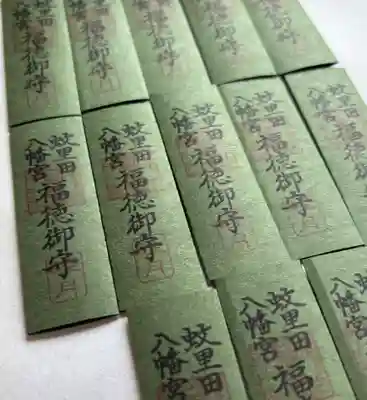 福徳御守
福徳御守
徳御守
御守
蚊里田
八幡宮
福徳御守
蚊里田
八幡宮
福徳御守
蚊里田
八幡宮
福徳御守
蚊里田
八幡宮
福徳御守
蚊里田
八幡宮
福徳
蚊里田
八幡宮
蚊里田
八幡宮
福
蚊里
八幡宮